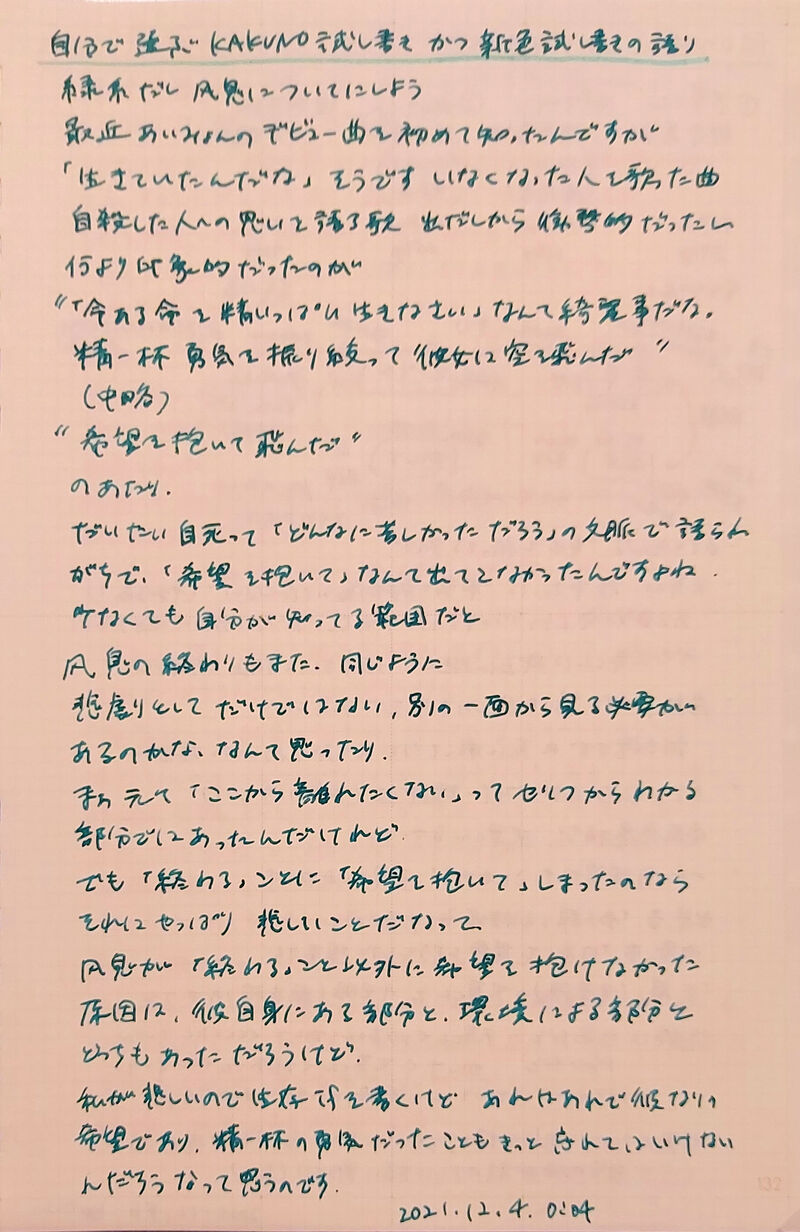 自分で選ぶKAKUNO試し書き かつ 新色試し書きの語り
緑系だし 風見についてにしよう
最近あいみょんのデビュー曲を初めて知ったんですが
「生きていたんだな」そうです いなくなった人を歌った曲
自殺した人への思いを語る歌 出だしから衝撃的だったし
何より印象的だったのが
“「今ある命を精いっぱい生きなさい」なんて綺麗事だな。
精一杯 勇気を振り絞って彼女は空を飛んだ”
(中略)
“希望を抱いて飛んだ”
のあたり.
だいたい自死って「どんなに苦しかっただろう」の文脈で語られ
がちで、「希望を抱いて」なんて出てこなかったんですよね.
少なくても自分が知ってる範囲だと
風見の終わりもまた、同じように
悲劇としてだけではない、別の一面から見る必要が
あるのかな、なんて思ったり.
まあ元々「ここから離れたくない」ってセリフからわかる
部分ではあったんだけれど.
でも「終わる」ことに「希望を抱いて」しまったのなら
それはやっぱり 悲しいことだなって、
風見が「終わる」こと以外に希望を抱けなかった
原因は、彼自身にある部分と、環境による部分と
どっちもあっただろうけど.
私が悲しいので生存ifを書くけど あれはあれで彼なりの
希望であり、精一杯の勇気だったこともきっと忘れてはいけない
んだろうなって思うのです.
2021.12.4. 0:04
132